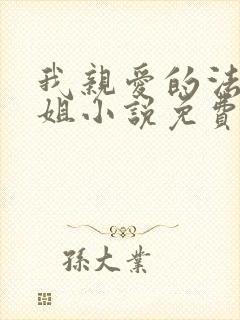 我親愛的法
姐小說免費
孫大業